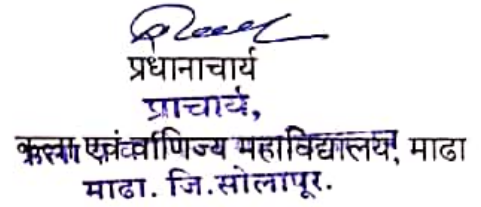 प्रधानाचार्य
प्राचार्य,
कला एवं वाणिज्य महाविद्यालय, माढा
माढा. जि.सोलापूर.